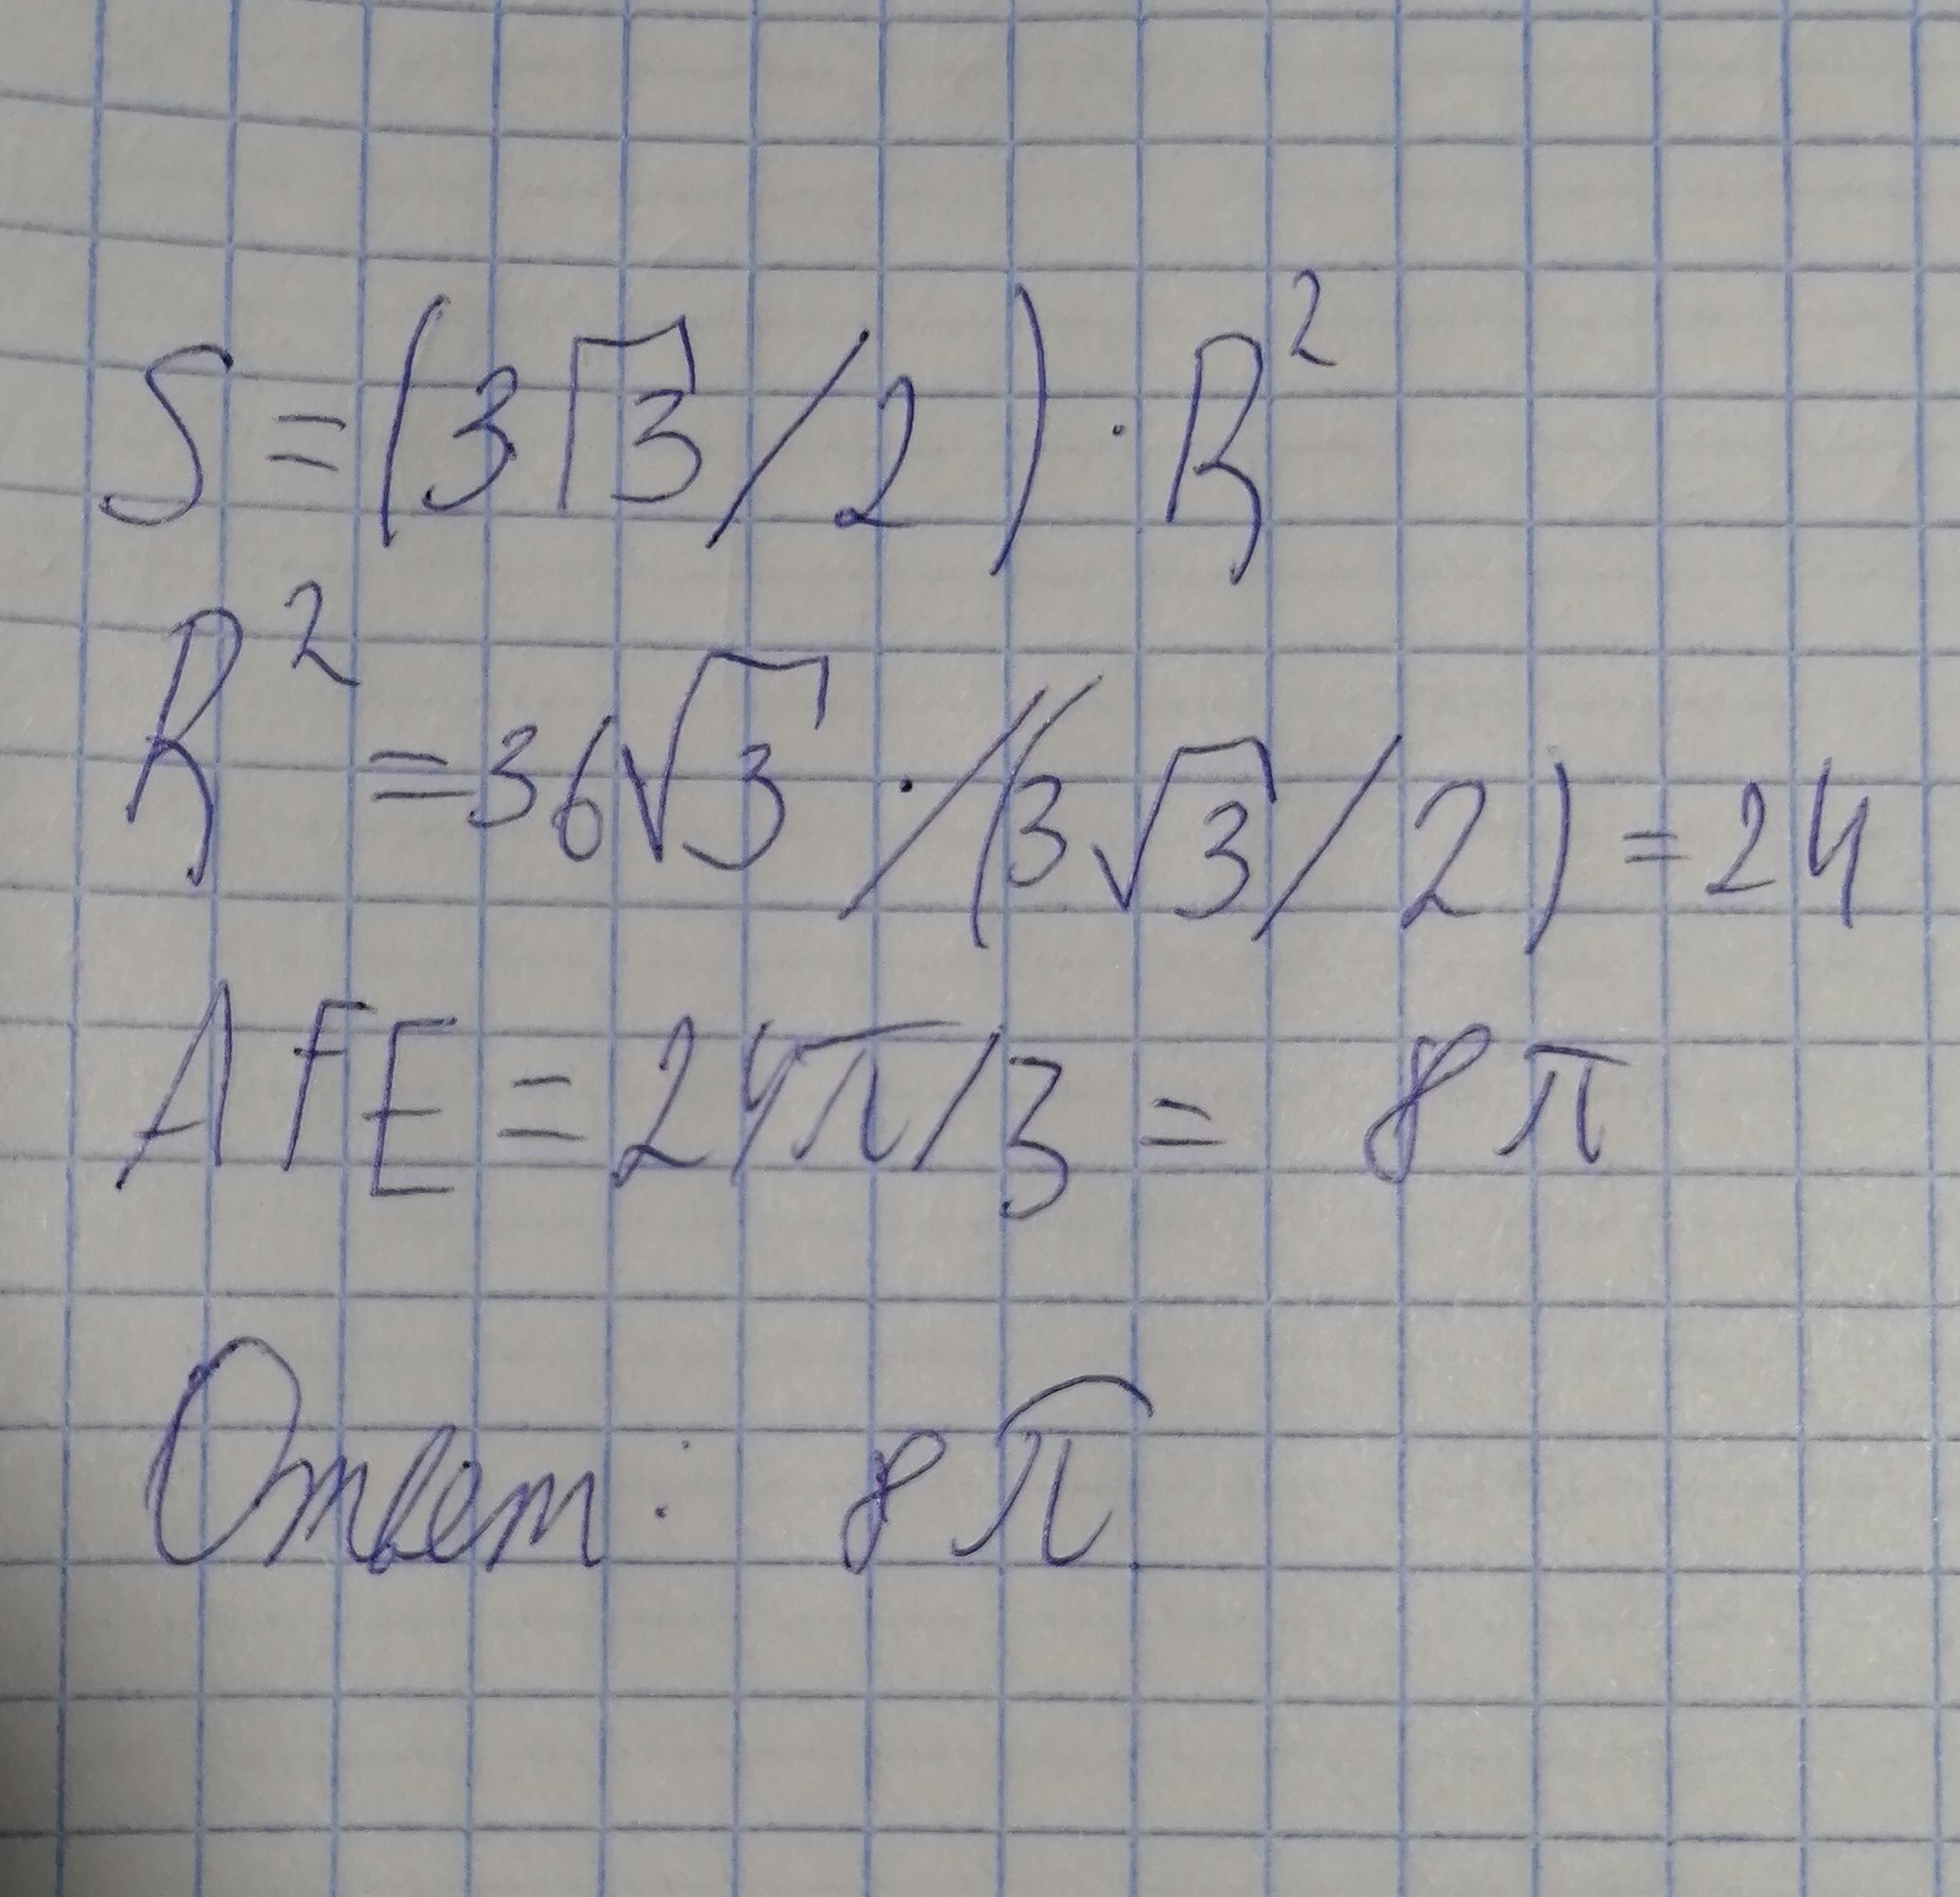 S=(3√3/2)·R²
R²=36√3·/(3√3/2)=24
AFE=24π/3=8π
Ответ: 8π